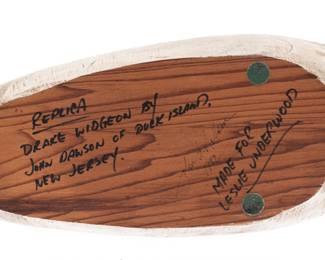 REPLICA
DRAKE WIDGEON BY
JOHN DAWSON OF DUCK ISLAND,
NEW JERSEY.
MADE FOR
LESLIE UNDERWOOD